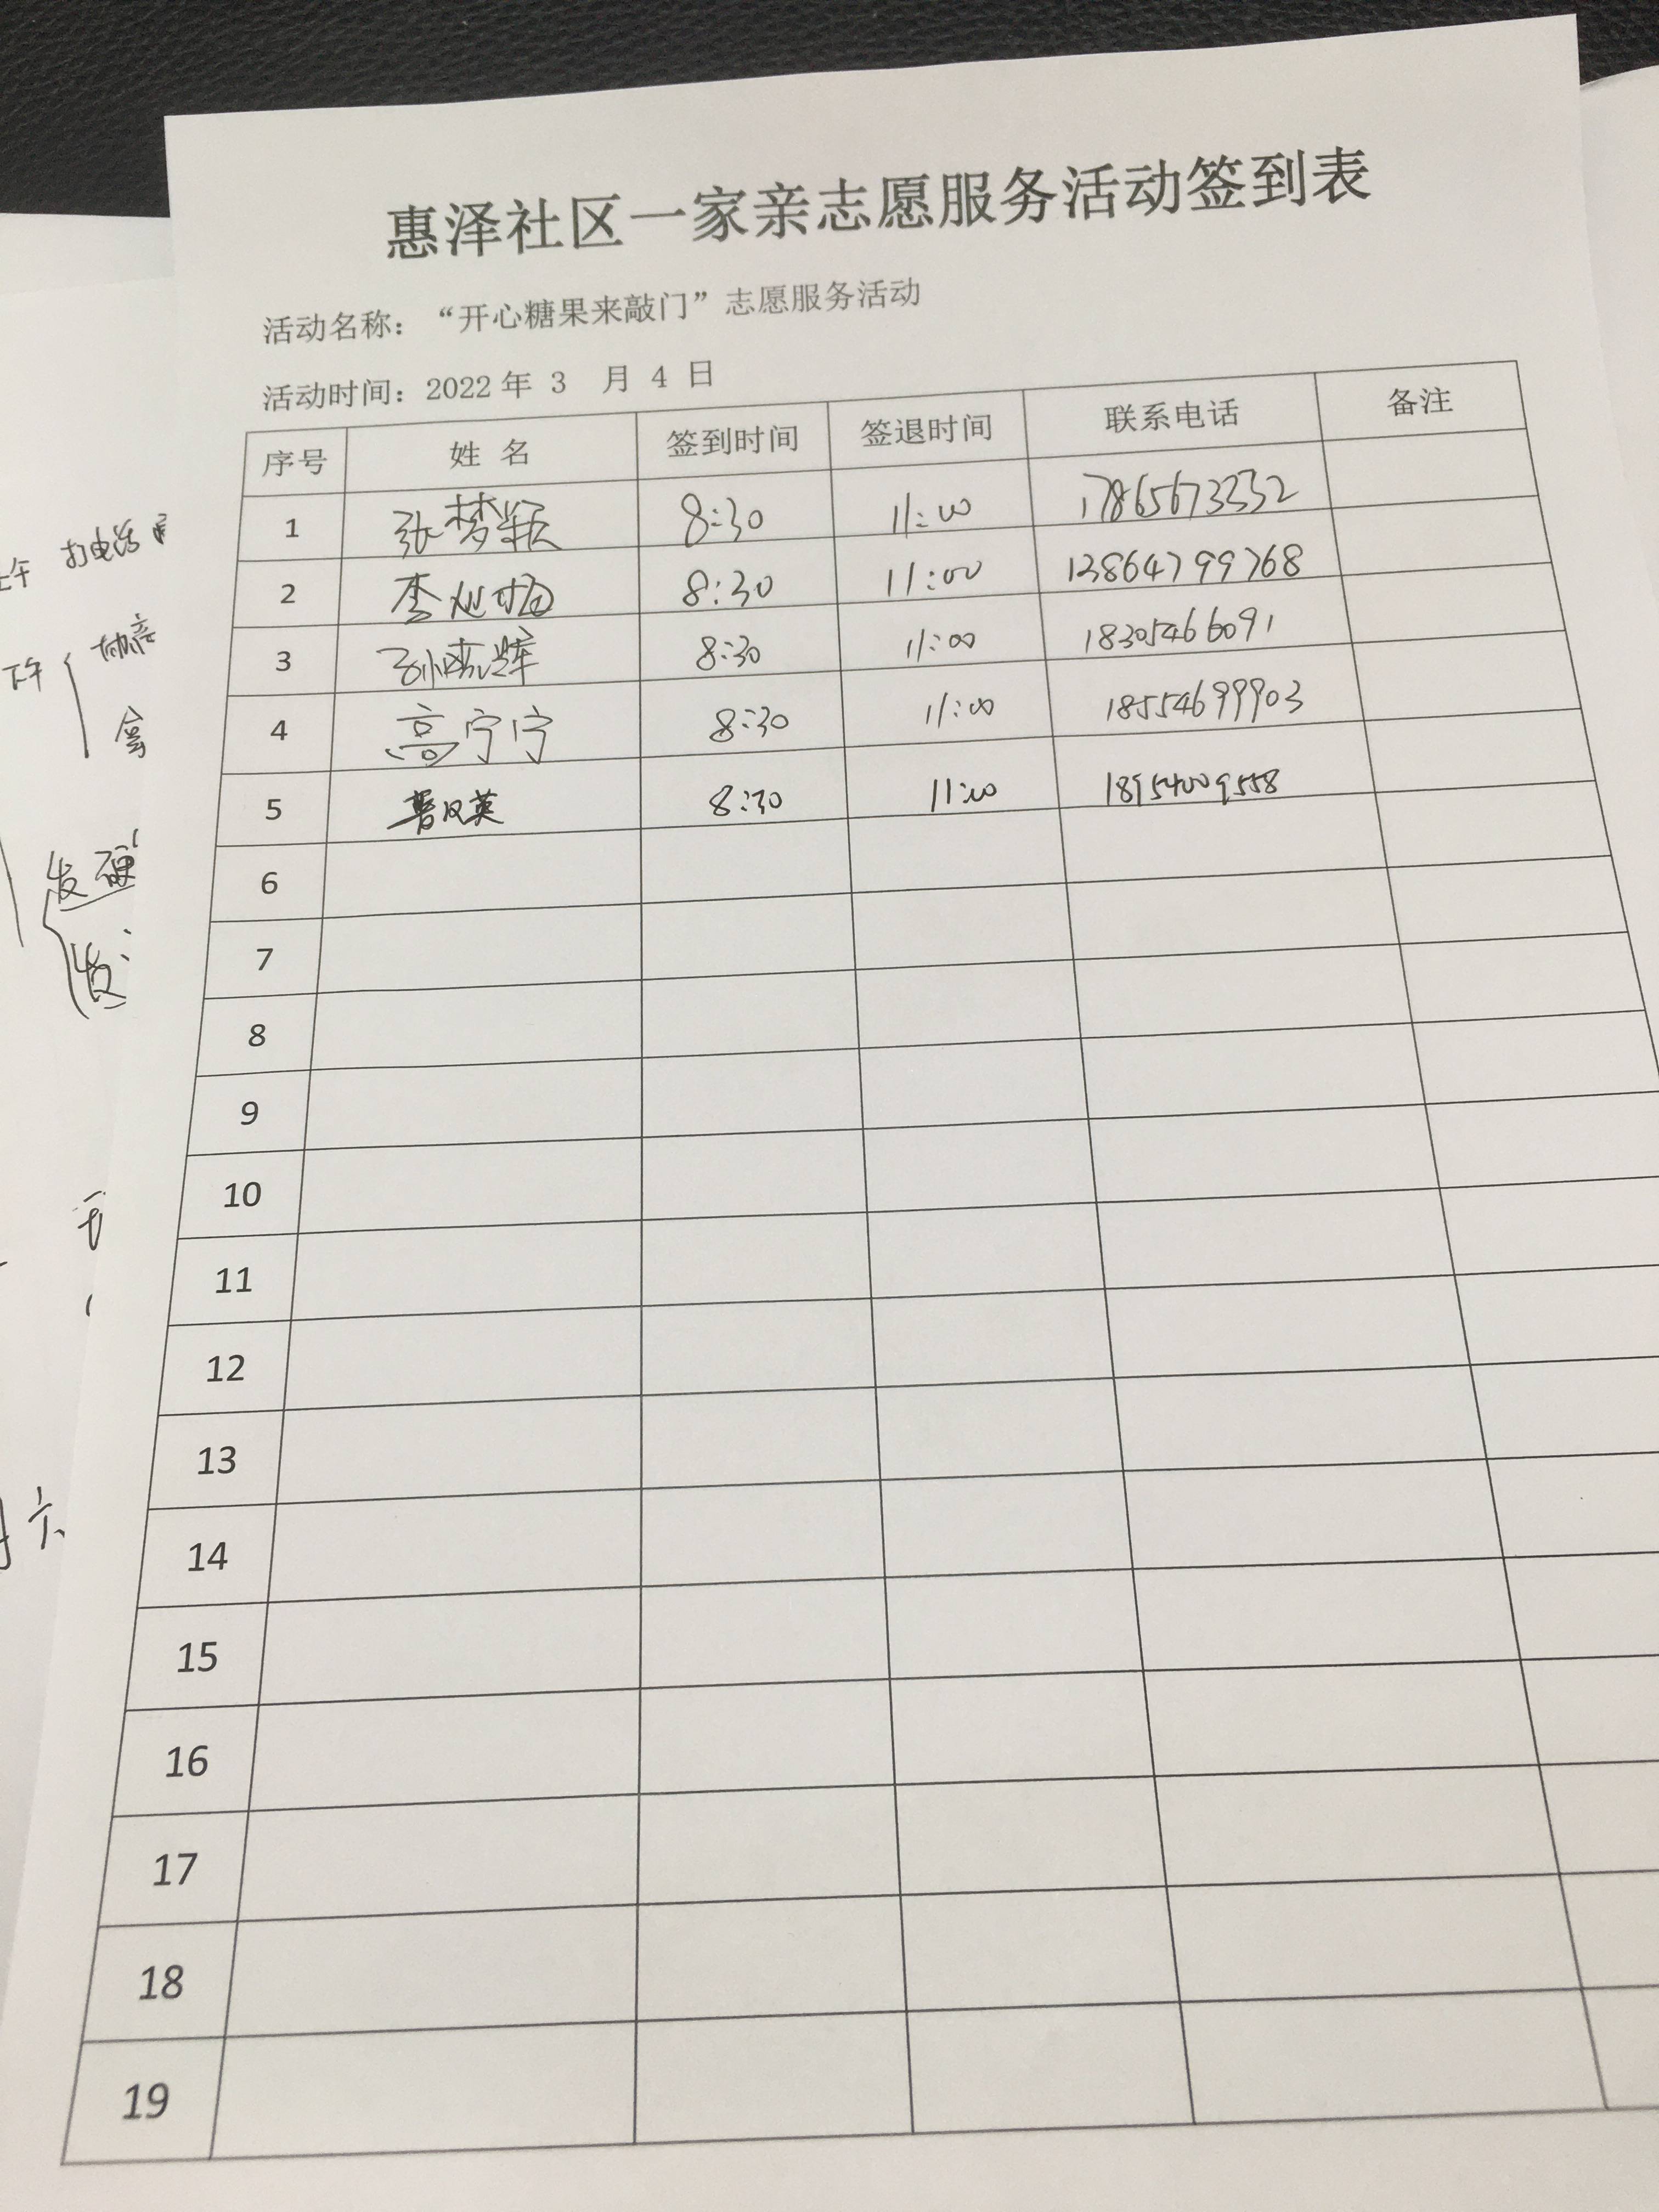 惠泽社区一家亲志愿服务活动签到表
活动名称：“开心糖果来敲门”志愿服务活动
活动时间：2022年 3 月 4 日
序号 姓名 签到时间 签退时间 联系电话 备注
1 张梦颖 8:30 11:00 17865673332
2 李 8:30 11:00 13864799768
3 孙 8:30 11:00 18305466091
4 高宁宁 8:30 11:00 18554699903
5 曹凤英 8:30 11:00 18954009558
6
7
8
9
10
11
12
13
14
15
16
17
18
19
打电话
下午
拿
发硬
发
六